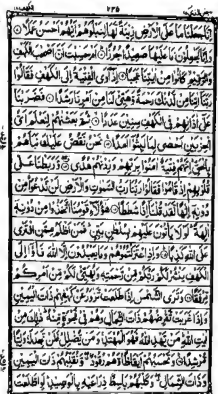 الكهف ٢٣٥
إنا جعلنا ما على الأرض زينة لها لنبلوهم أيهم أحسن عملا
وإنا لجاعلون ما عليها صعيدا جرزا أم حسبت أن أصحب الكهف
والرقيم كانوا من آيتنا عجبا إذ أوى الفتية إلى الكهف فقالوا
ربنا آتنا من لدنك رحمة وهيئ لنا من أمرنا رشدا فضربنا
على آذانهم في الكهف سنين عددا ثم بعثنهم لنعلم أي
الحزبين أحصى لما لبثوا أمدا نحن نقص عليك نبأهم
بالحق إنهم فتية آمنوا بربهم وزدنهم هدى وربطنا على
قلوبهم إذ قاموا فقالوا ربنا رب السموت والأرض لن ندعوا من
دونه إلها لقد قلنا إذا شططا هؤلاء قومنا اتخذوا من دونه
آلهة لولا يأتون عليهم بسلطن بين فمن أظلم ممن افترى
على الله كذبا وإذ اعتزلتموهم وما يعبدون إلا الله فأووا إلى
الكهف ينشر لكم ربكم من رحمته ويهيئ لكم من أمركم
مرفقا وترى الشمس إذا طلعت تزور عن كهفهم ذات اليمين
وإذا غربت تقرضهم ذات الشمال وهم في فجوة منه ذلك من
آيت الله من يهد الله فهو المهتد ومن يضلل فلن تجد له وليا
مرشدا وتحسبهم أيقاظا وهم رقود ونقلبهم ذات اليمين
وذات الشمال وكلبهم باسط ذراعيه بالوصيد لو اطلعت